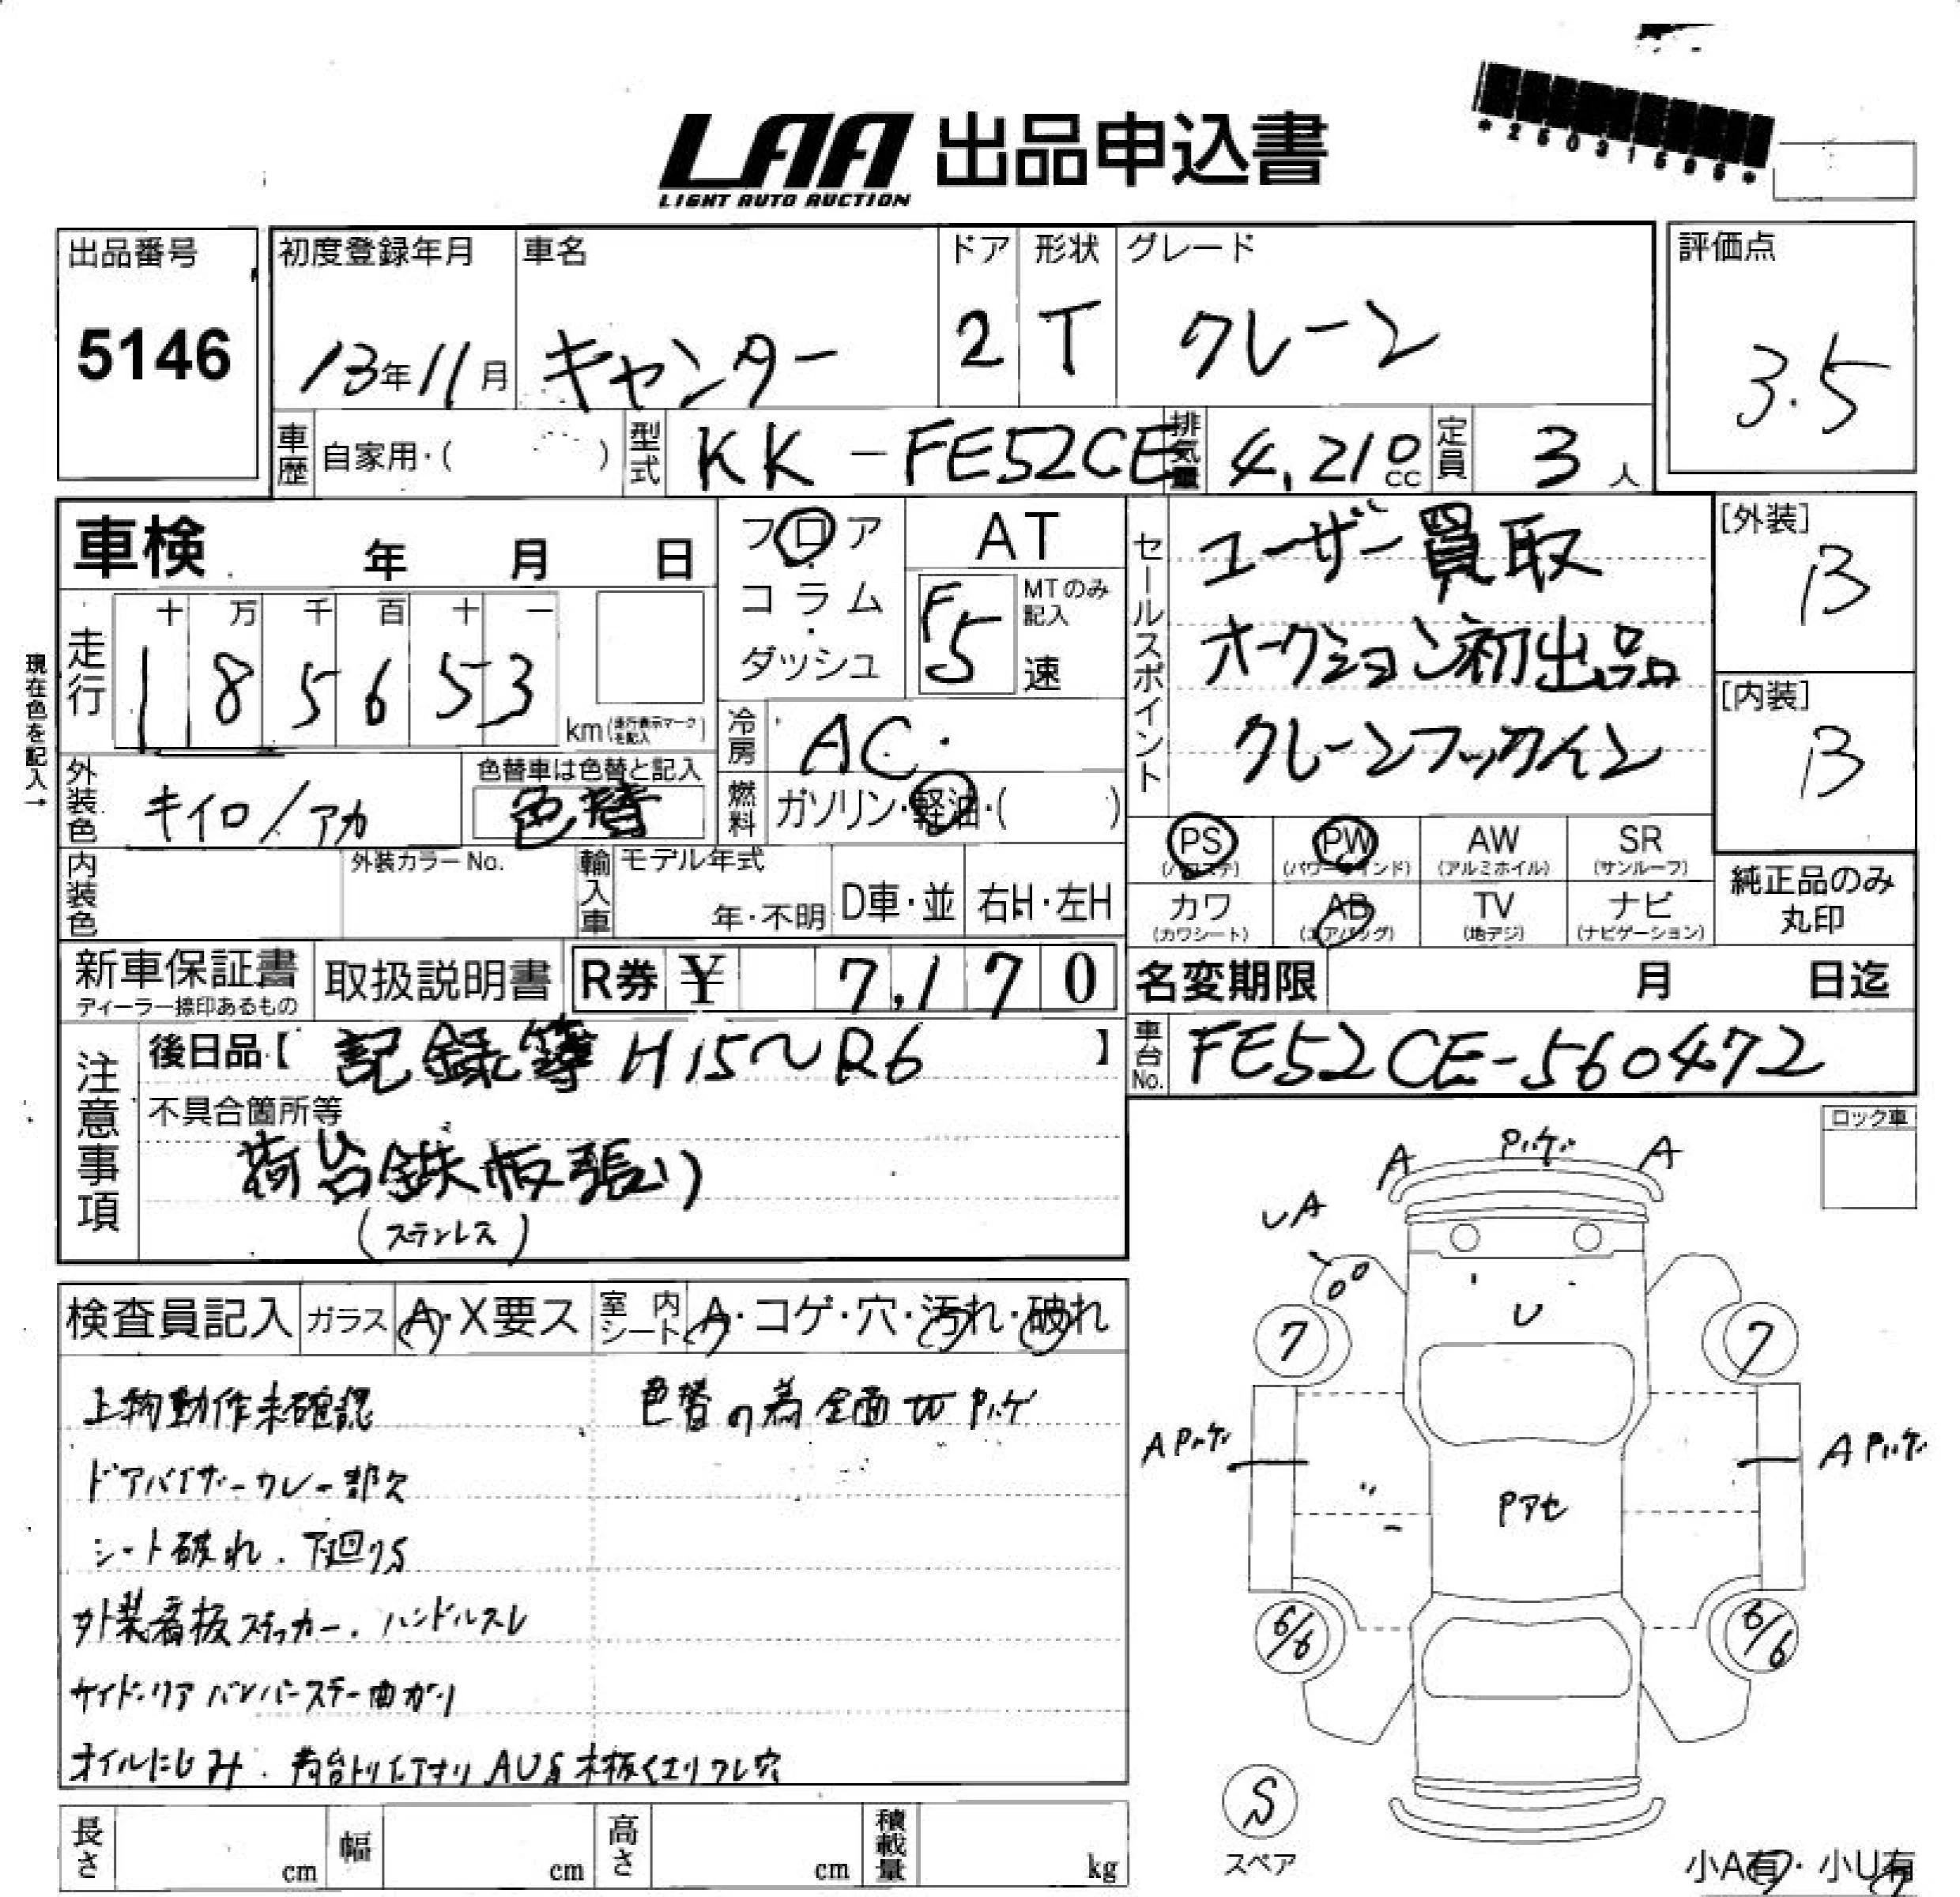 *25031595*
LAA 出品申込書
LIGHT AUTO AUCTION
出品番号
5146
初度登録年月
13年11月
車名
キャンター
ドア
2
形状
T
グレード
クレーン
評価点
3.5
車歴
自家用・( )
型式
KK-FE52CE
排気量
4,210cc
定員
3人
車検 年 月 日
フロア・コラム・ダッシュ
AT
F5
MTのみ記入
速
セールスポイント
ユーザー買取
オークション初出品
クレーンフックイン
[外装]
B
[内装]
B
現在色を記入→
走行
十 万 千 百 十 一
1 8 5 6 5 3
km(走行表示マークを記入)
冷房
AC
燃料
ガソリン・軽油・( )
外装色
キイロ/アカ
色替車は色替と記入
色替
内装色
外装カラーNo.
輸入車
モデル年式
年・不明
D車・並
右H・左H
PS
(パワステ)
PW
(パワーウインド)
AW
(アルミホイル)
SR
(サンルーフ)
カワ
(カワシート)
AB
(エアバッグ)
TV
(地デジ)
ナビ
(ナビゲーション)
純正品のみ
丸印
新車保証書
ディーラー捺印あるもの
取扱説明書
R券 ¥ 7,170
名変期限 月 日迄
注意事項
後日品【 記録等 H15~R6 】
車台No.
FE52CE-560472
不具合箇所等
荷台鉄板張り
(ステンレス)
ロック車
検査員記入
ガラス
A・X要ス
室内シート
A・コゲ・穴・汚れ・破れ
上物動作未確認
色替の為全面
ドアバイザーワレ一部欠
シート破れ.下廻りS
外装看板ステッカー.ハンドルスレ
サイド・リアバンパーステー曲がり
オイルにじみ.
長さ cm
幅 cm
高さ cm
積載量 kg
A
A
UA
U
7
7
A
A
Pアセ
6/6
6/6
S
スペア
小A有・小U有